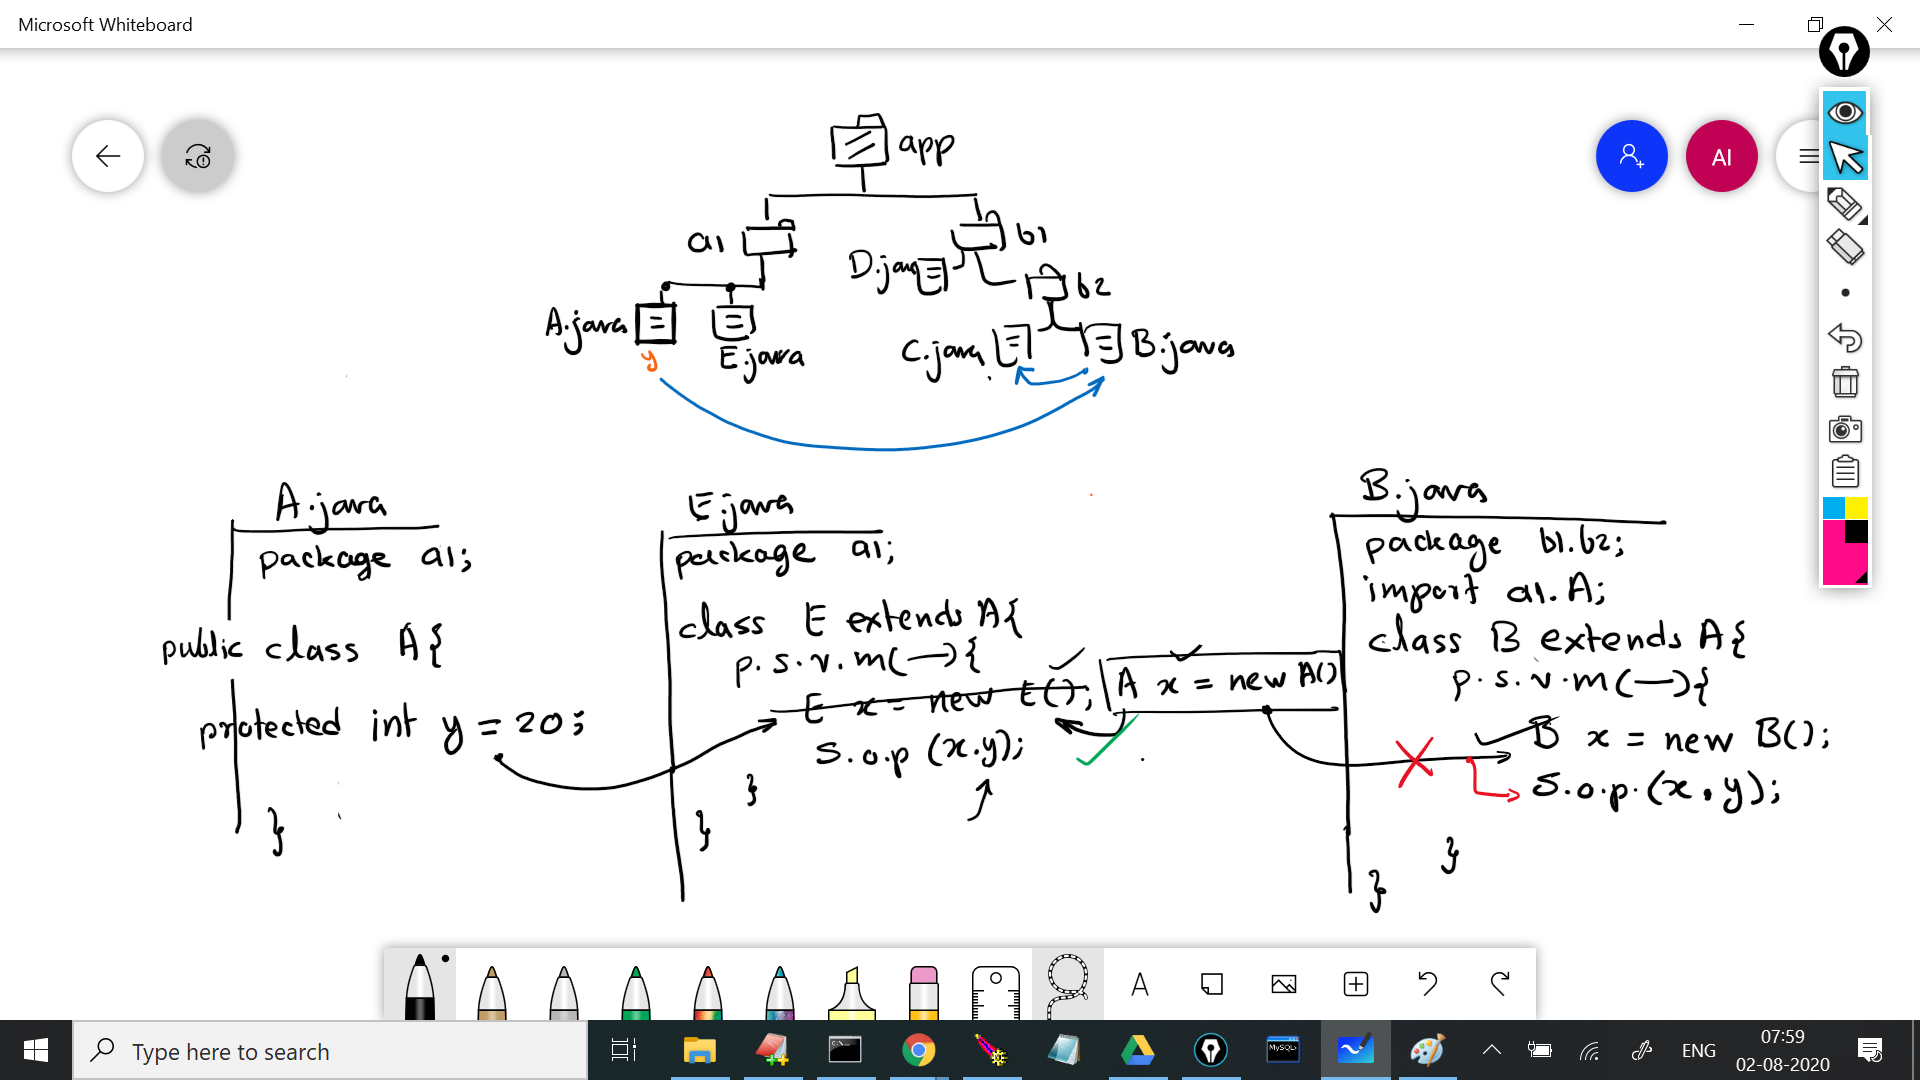 Microsoft Whiteboard
AI
app
a1
b1
D.java
b2
A.java
E.java
C.java
B.java
y
A.java
package a1;
public class A{
protected int y = 20;
}
E.java
package a1;
class E extends A{
p.s.v.m(—){
E x = new E();
S.o.p (x.y);
}
}
A x = new A()
B.java
package b1.b2;
import a1.A;
class B extends A{
p.s.v.m(—){
B x = new B();
S.o.p.(x.y);
}
}
A
Type here to search
C:\_
MySQL
ENG
07:59
02-08-2020